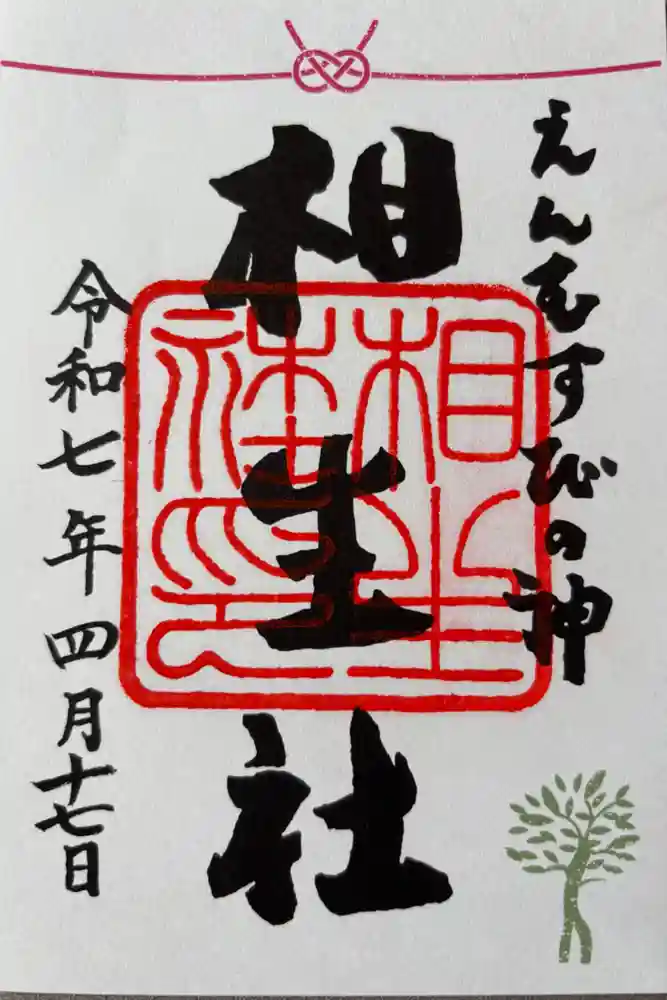 えんむすびの神
相生社
相生社神印
令和七年四月十七日